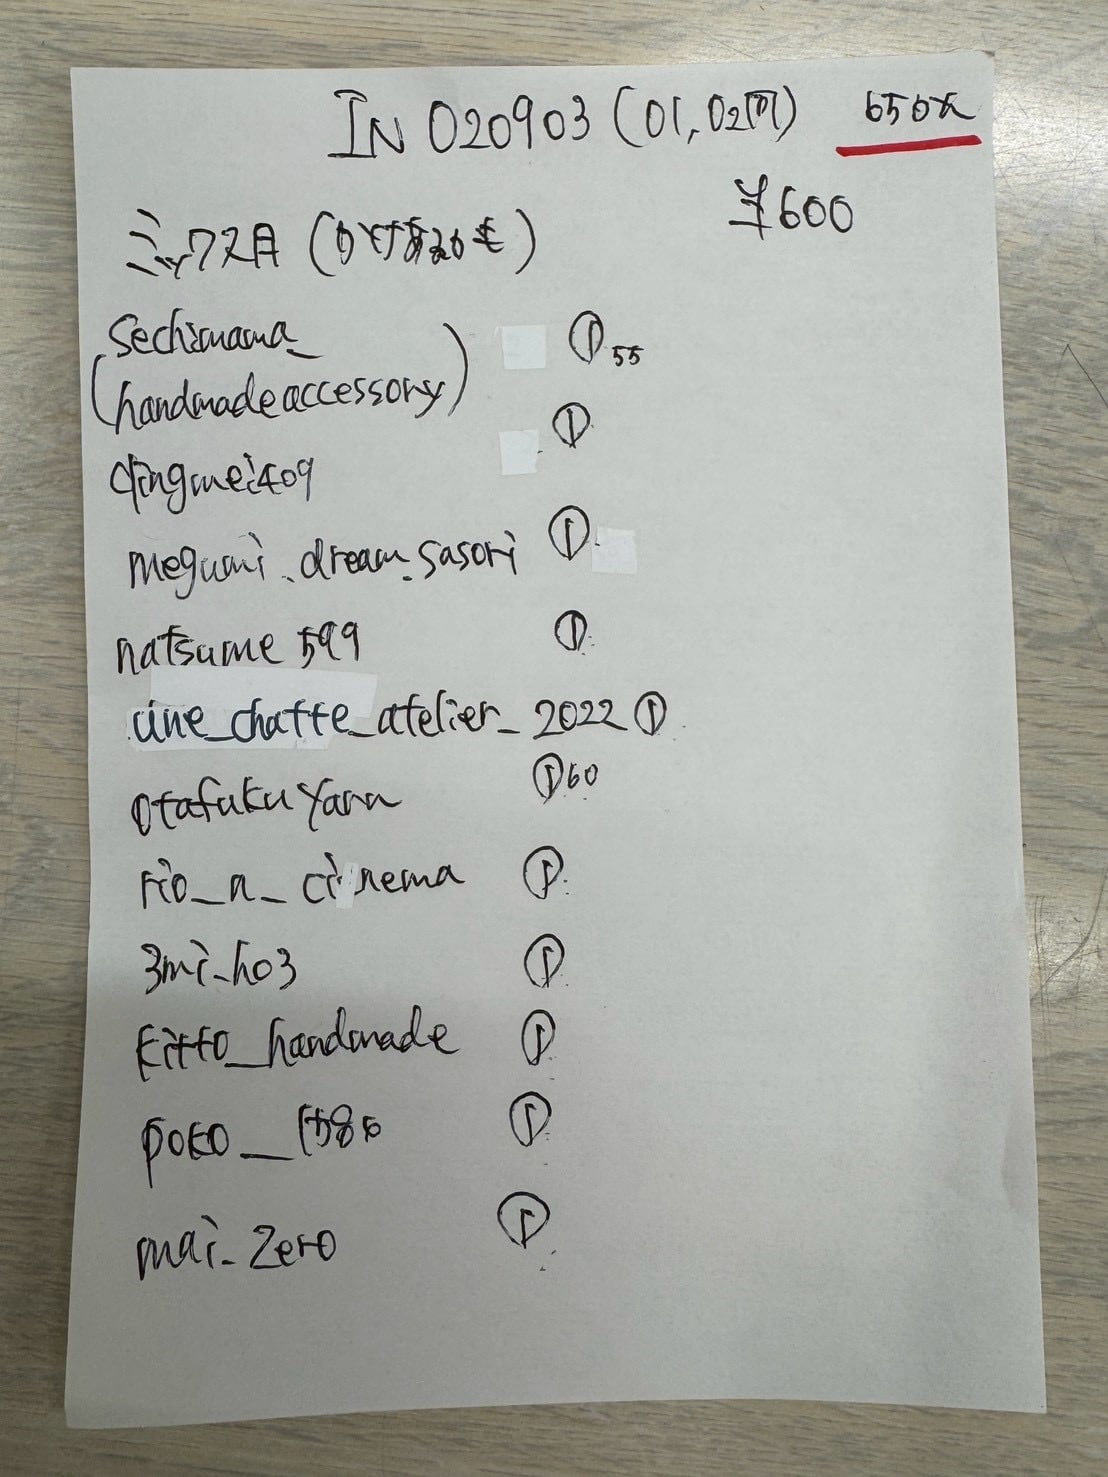 IN 020903 (01,02同) 650次
¥600
ミックス月
sechimama_ ① 55
(handmade accessory)
①
qingmei409
megumi.dream.sasori ①
natsume 599 ①
une_chatte_atelier_2022 ①
otafukuyann ① 60
rio_n_cinema ①
3mi_ho3 ①
kitto_handmade ①
poko__1580 ①
mai_zero ①